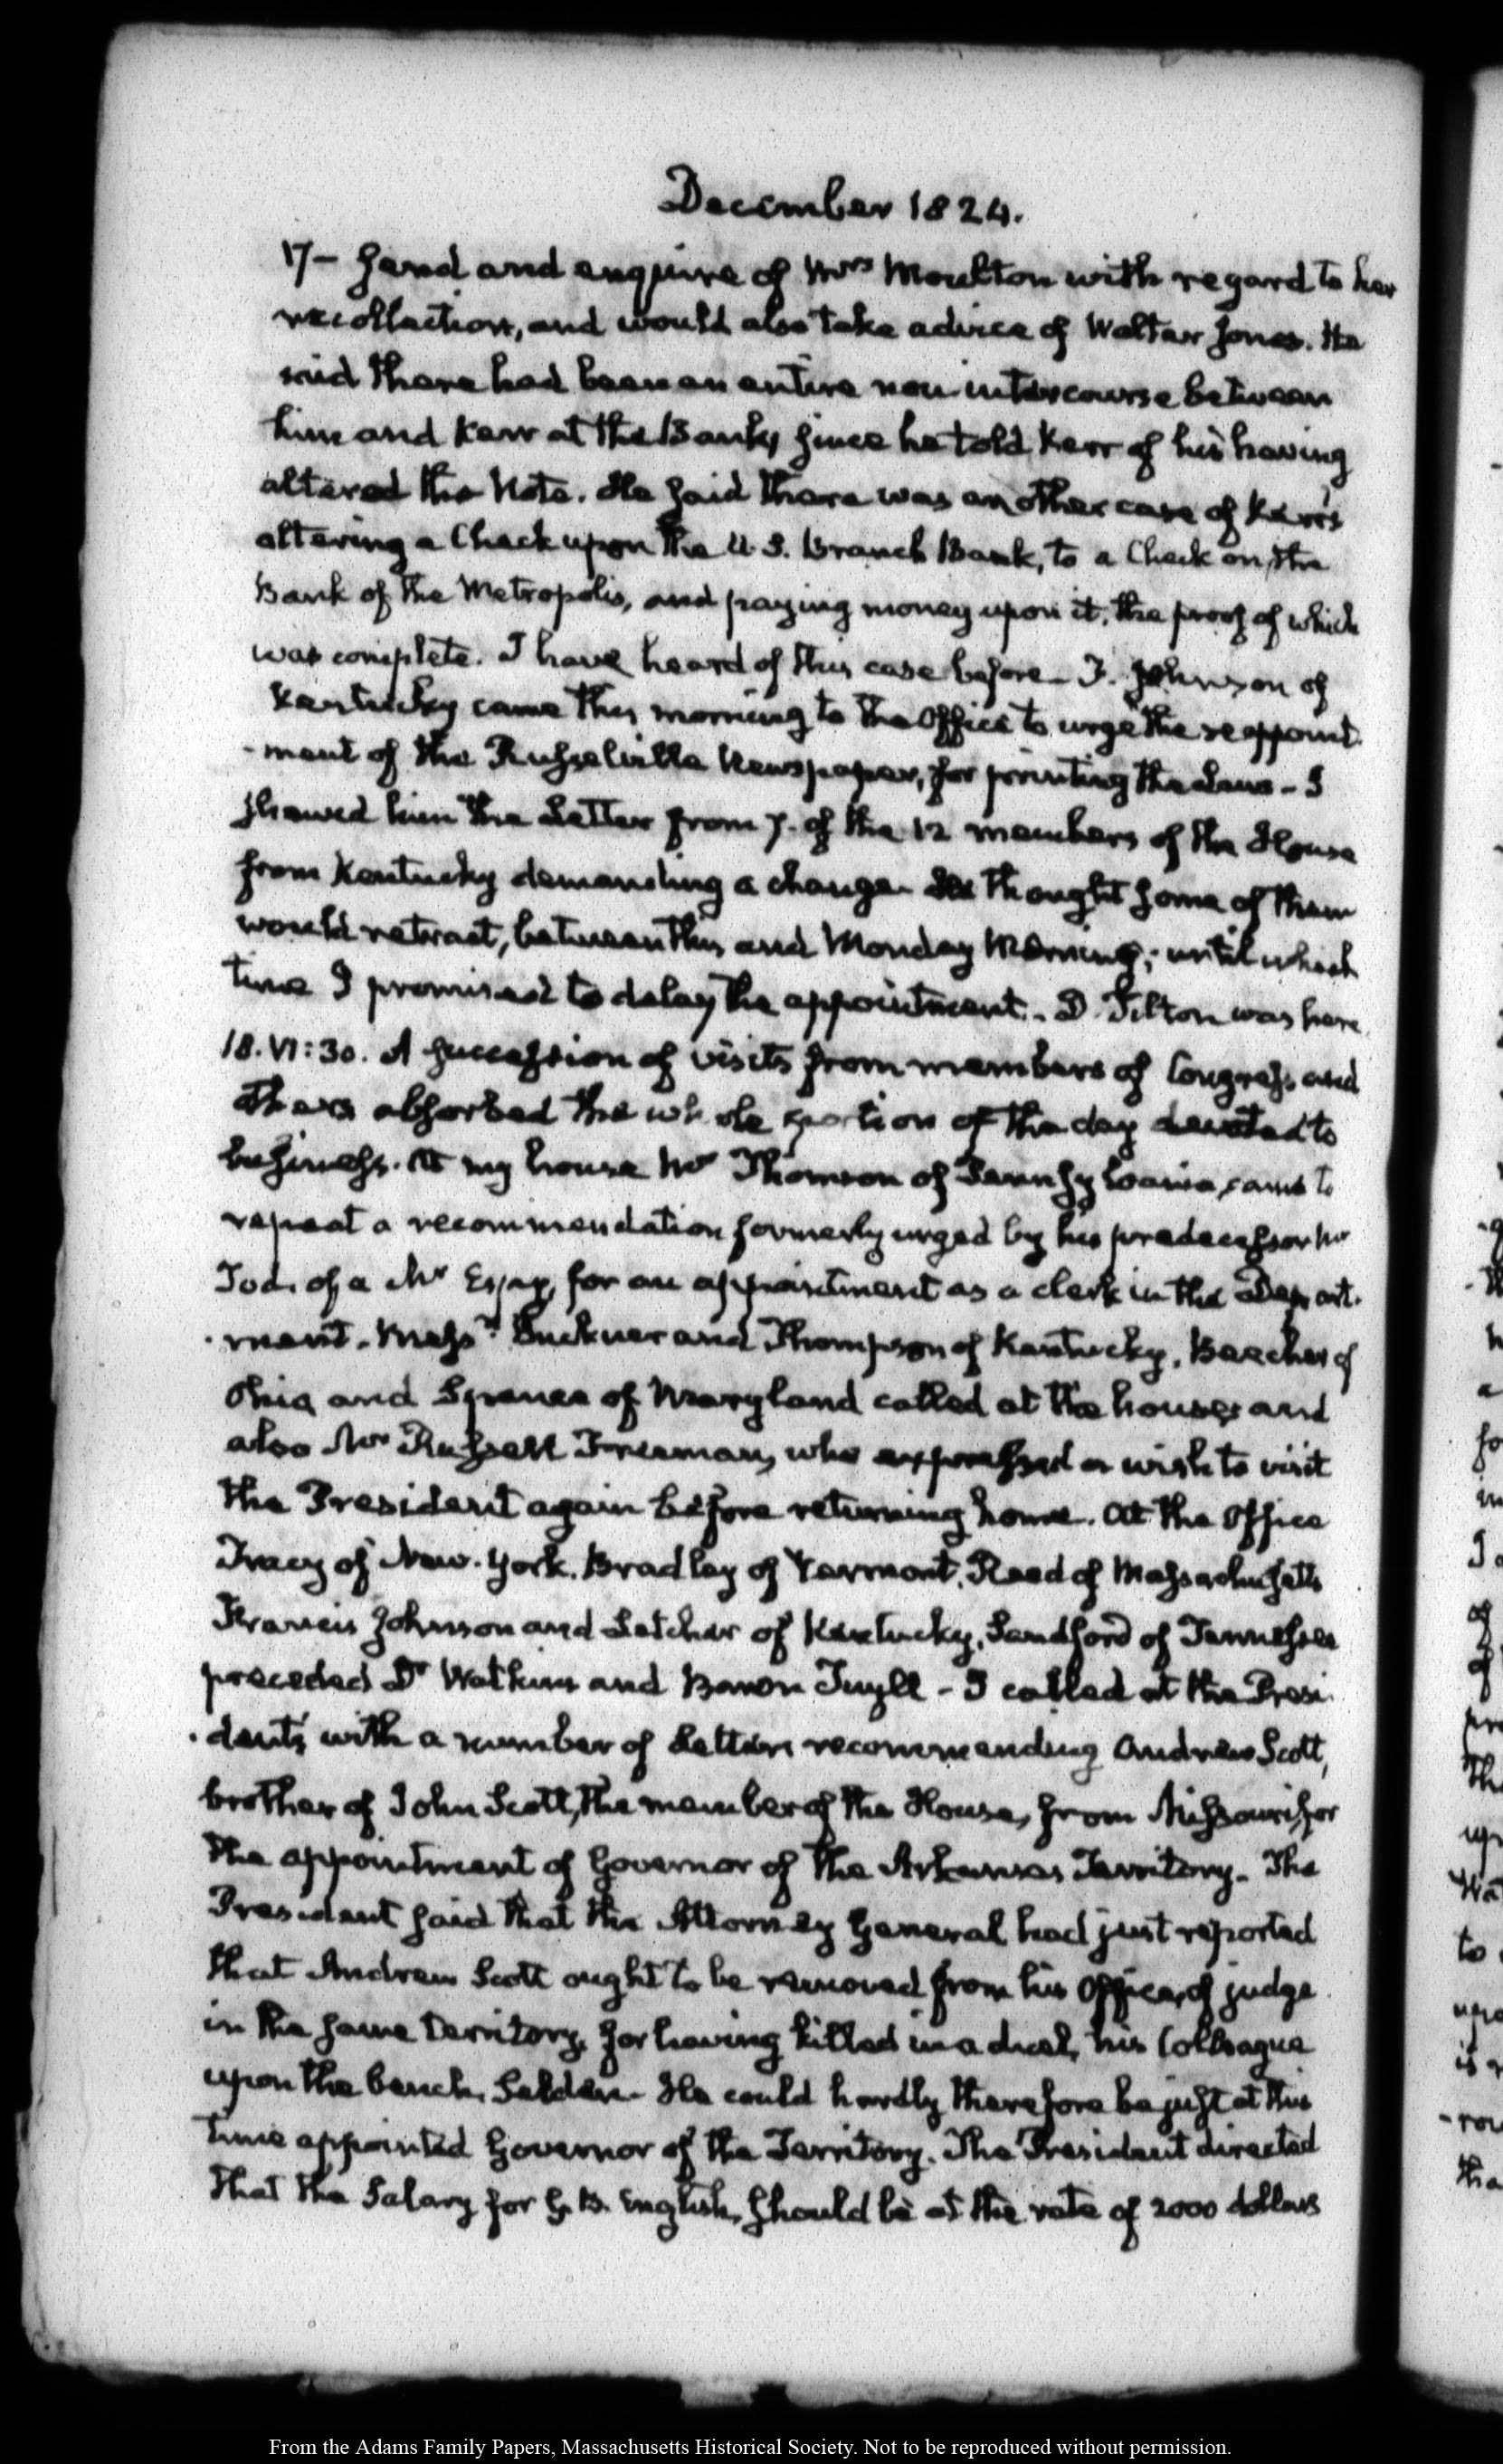 December 1824.
17- send and enquire of Mrs Moulton with regard to her
recollection, and would also take advice of Walter Jones. He
said there had been an entire non intercourse between
him and Kerr at the Bank, since he told Kerr of his having
altered the Note. He said there was another case of Kerr's
altering a Check upon the U.S. Branch Bank, to a Check on the
Bank of the Metropolis, and paying money upon it, the proof of which
was complete. I have heard of this case before- F. Johnson of
Kentucky came this morning to the Office to urge the reappoint-
-ment of the Russelville Newspaper, for printing the Laws- I
shewed him the Letter from 7. of the 12 members of the House
from Kentucky demanding a change- He thought some of them
would retract, between this and Monday Morning; until which
time I promised to delay the appointment.- D. Tilton was here
18. VI:30. A succession of visits from members of Congress and
others absorbed the whole portion of the day devoted to
business. At my house Mr Thomson of Pennsylvania, came to
repeat a recommendation formerly urged by his predecessor Mr
Tod. of a Mr Espy, for an appointment as a clerk in the Depart-
-ment. Messrs Buckner and Thompson of Kentucky, Beecher of
Ohio and Spence of Maryland called at the house, and
also Mr Russell Freeman, who expressed a wish to visit
the President again before returning home. At the Office
Tracy of New-York. Bradley of Vermont, Reed of Massachusetts
Francis Johnson and Letcher of Kentucky, Sandford of Tennessee
preceded Dr Watkins and Baron Tuyll- I called at the Presi-
-dent's with a number of Letters recommending Andrew Scott,
brother of John Scott, the member of the House, from Missouri, for
the appointment of Governor of the Arkansas Territory- The
President said that the Attorney General had just reported
that Andrew Scott ought to be removed from his Office, of judge
in the same Territory, for having killed in a duel, his Colleague
upon the bench, Selden- He could hardly therefore be just at this
time appointed Governor of the Territory. The President directed
that the Salary for G. B. English, should be at the rate of 2000 dollars
From the Adams Family Papers, Massachusetts Historical Society. Not to be reproduced without permission.